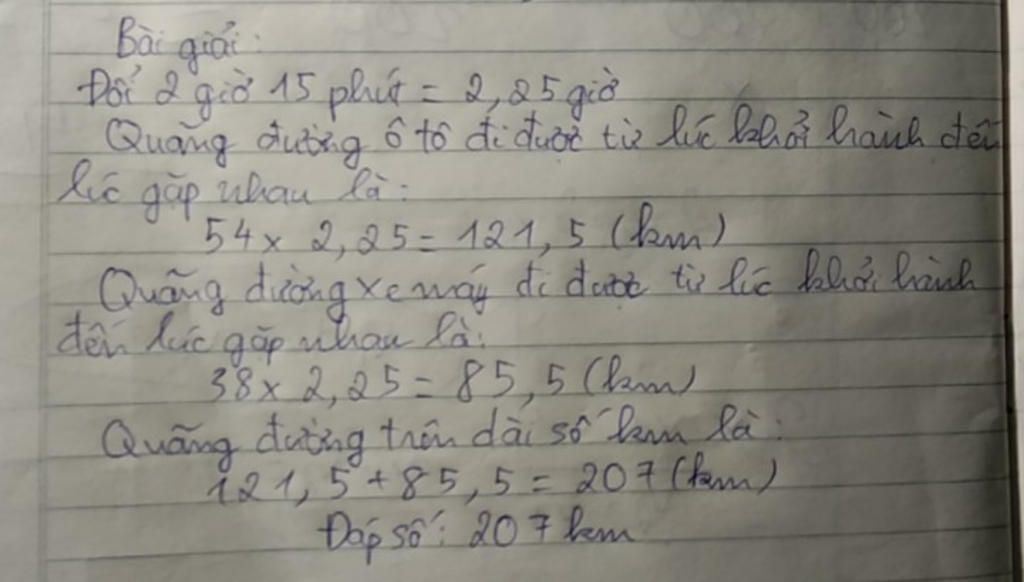 Bài giải:
Đổi 2 giờ 15 phút = 2,25 giờ
Quãng đường ô tô đi được từ lúc khởi hành đến
lúc gặp nhau là:
54 x 2,25 = 121,5 (km)
Quãng đường xe máy đi được từ lúc khởi hành
đến lúc gặp nhau là:
38 x 2,25 = 85,5 (km)
Quãng đường trên dài số km là:
121,5 + 85,5 = 207 (km)
Đáp số: 207 km